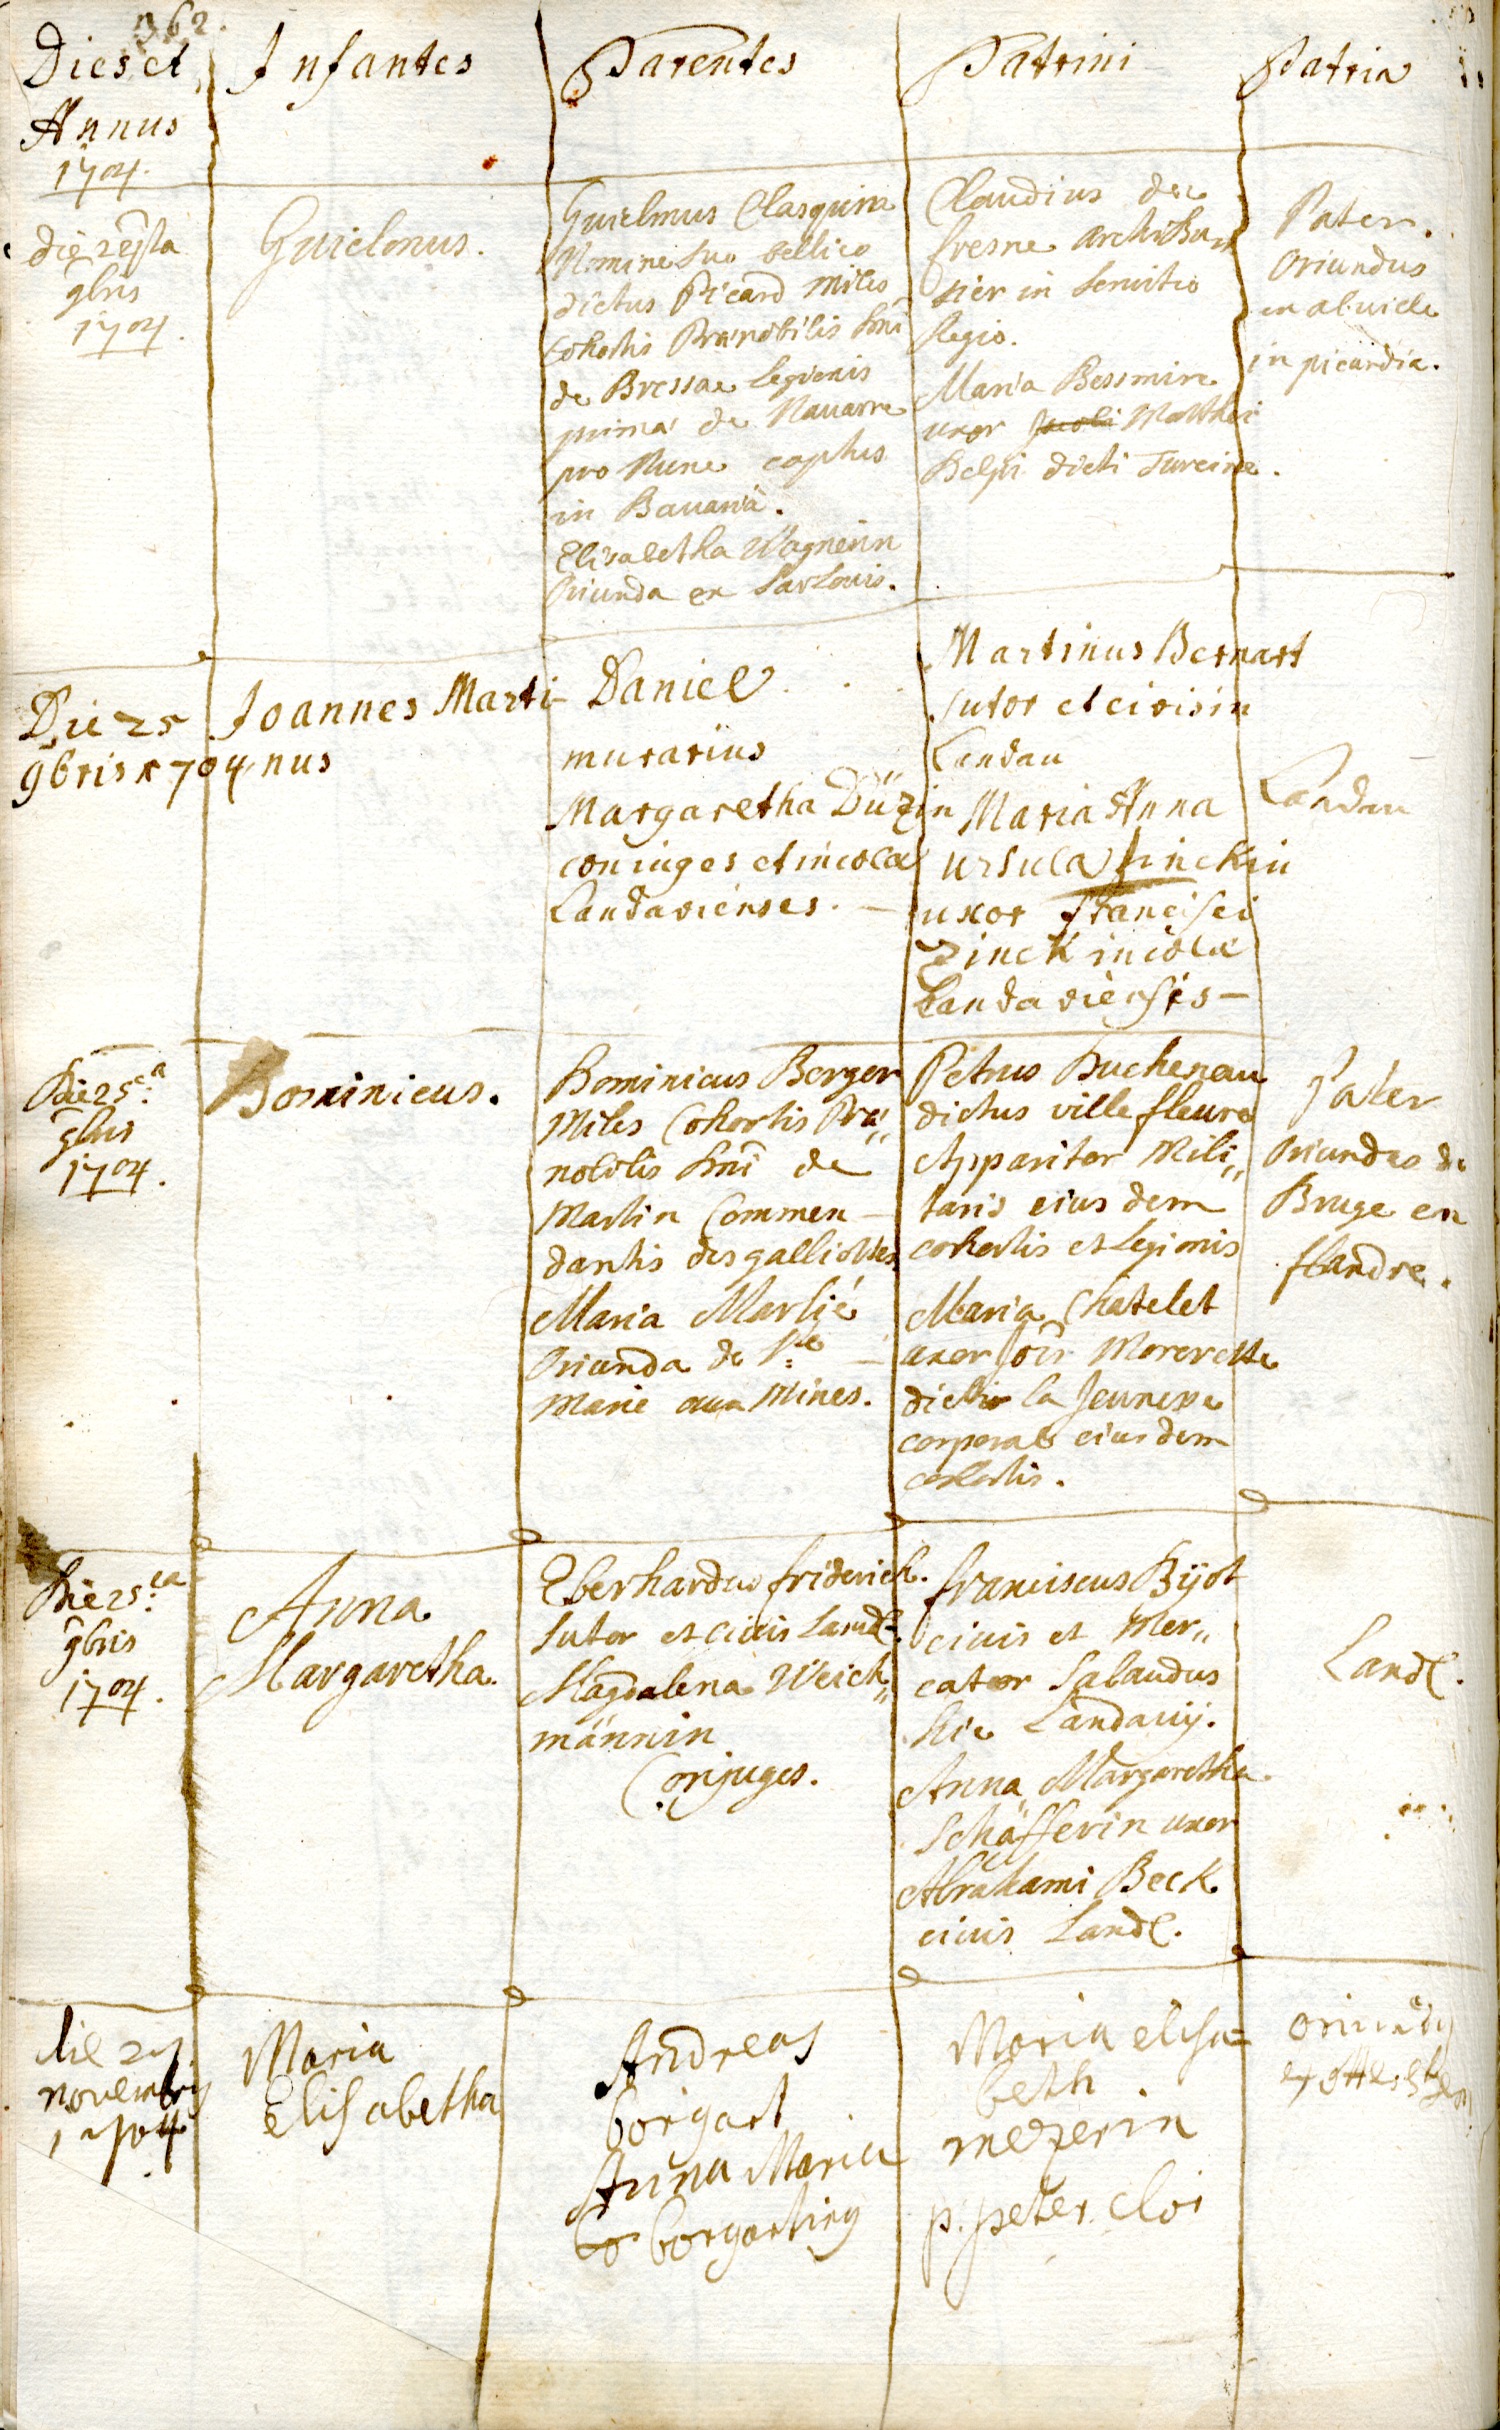 362.
Dies et
Annus
1704.
Infantes
Parentes
Patrini
Patria
die
9bris
1704.
Guielmus.
Guielmus Clasquin
Nomine suo bellico
dictus Picard Miles
Cohortis Prænobilis Dni
de Bressae Legionis
primæ de Nauarre
pro Nunc captus
in Bauaria.
Elisabetha Wagnerin
Oriunda ex Sarlouis.
Claudius de
fresne
in seruitio
Regio.
Maria Bessmire
uxor Jacobi Matthæi
Belpi dicti Tureine.
Pater
Oriundus
ex abuille
in picardia.
Die 25
9bris 1704
Joannes Marti-
nus
Daniel . . .
murarius
Margaretha Düzin
coniuges et incolæ
Landavienses. —
Martinus Bernart
sutor et civis in
Landau
Maria Anna
Ursula Zinckin
uxor Francisci
Zinck incolæ
Landaviensis —
Landau
Die 25ta
9bris
1704.
Dominicus.
Dominicus Berger
Miles Cohortis Præ„
nobilis Dni de
Martin Commen —
dantis des galliottes
Maria Marlié
Oriunda de Ste —
Marie aux Mines.
Petrus Duchenau
dictus ville fleure
Apparitor Mili„
taris eius dem
cohortis et Legionis
Maria Chatelet
uxor Jois Morerette
dicti la Jeunesse
corporals eius dem
cohortis.
Pater
Oriundus de
Bruge en
flandre.
Die 25ta
9bris
1704.
Anna
Margaretha.
Eberhardus friderich.
Sutor et Ciuis Land.
Magdalena Weich„
männin
Conjuges.
franciscus Bijot
ciuis et Mer„
cator Sabaudus
hic Landauij.
Anna Margaretha
Schäfferin uxor
Abrahami Beck
ciuis Land.
Land.
die 27
novembris
1704
Maria
Elisabetha
Andreas
borgart
Anna Maria
bo borgarting
Maria elisa=
beth
mezerin
p. peter. cloi